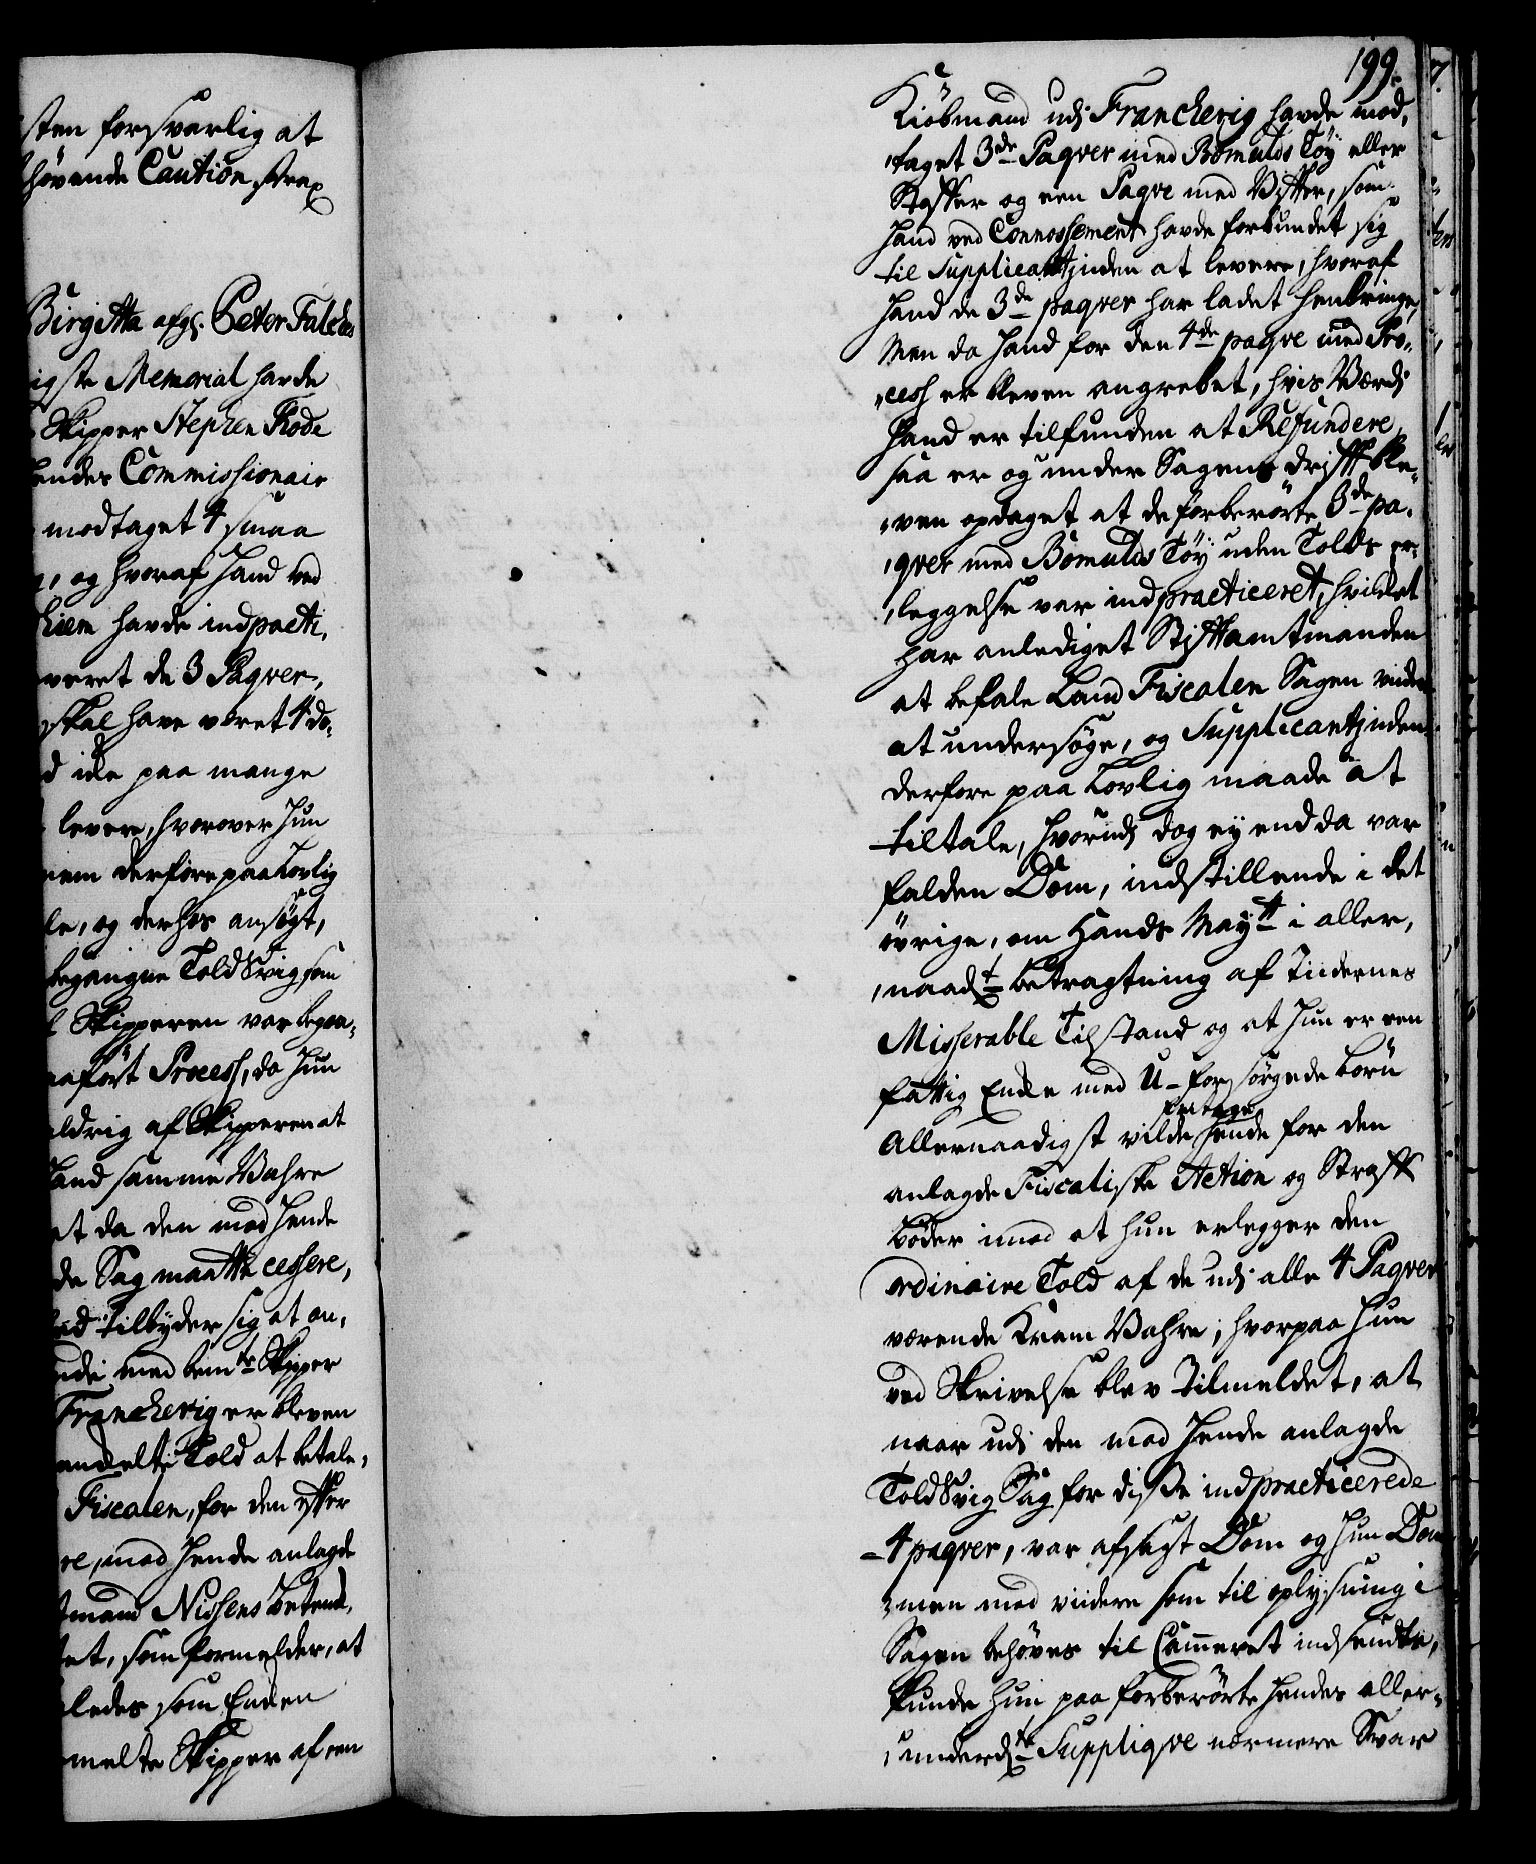 sten forsvarlig at
høvende Caution, strax
Birgitta afg. Peter Falches
igste Memorial havde
Skipper Stephen Rode
hendes Commissionair
modtaget 4 smaa
, og hvoraf Hand ved
hiem havde indpracti,
veret de 3 Paqver,
skal have været 4 do,
d icke paa mange
levere, hvorover Hun
nem derfore paa Lovlig
le, og derhos ansøgt,
begangne Told Svig som
Skipperen var begaa,
nafört Process, da Hun
aldrig af Skipperen at
Hand samme Vahre
et da den mod Hende
de Sag maatte cessere,
tilbyder sig at an,
nde med bemte Skipper
Francherig er bleven
Told at betale,
Fiscalen, for den efter
re, mod Hende anlagde
tmand Nissens Betenk,
et, som formelder, at
ledes som Encken
melte Skipper af een
199.
Kiöbmand udj Francherig havde mod,
,taget 3de Paqver med Bomulds Töy eller
Stoffer og een Paqve med Vifter, som
Hand ved Connossement havde forbundet sig
til Supplicantjnden at levere, hvoraf
Hand de 3de paqver har ladet henbringe,
Men da Hand for den 4de paqve med Pro,
,cess er bleven angrebet, hvis Værdj
Hand er tilfunden at Refundere,
saa er og under Sagens Drifft ble,
,ven opdaget at de forberörte 3de pa,
,qver med Bomulds Töy uden Tolds er,
,leggelse var indpracticeret, hvilcket
har anlediget Stifftamtmanden
at befale Land Fiscalen Sagen viidere
at undersöge, og Supplicantjnden
derfore paa Lovlig maade at
tiltale, hvorudj dog ey endda var
falden Dom, indstillende i det
övrige, om Hands Maytt i aller,
,naadst betragtning af Tiidernes
Misserable Tilstand og at Hun er een
fattig Encke med U-forsörgede Börn
Allernaadigst vilde fritage Hende for den
anlagde Fiscaliske Action og Straff
Böder imod at hun erlegger den
ordinaire Told af de udj alle 4 Paqver
værende Kram Vahre; hvorpaa Hun
ved Skrivelse blev tilmeldet, at
naar udj den mod Hende anlagde
Told Svig Sag for disse indpracticerede
4 paqver, var afsagt Dom og Hun Dom,
,men med viidere som til oplysning i
Sagen behöves til Cammeret indsendte,
kunde Hun paa forberörte Hendes aller,
,underdste Suppliqve nærmere Svar